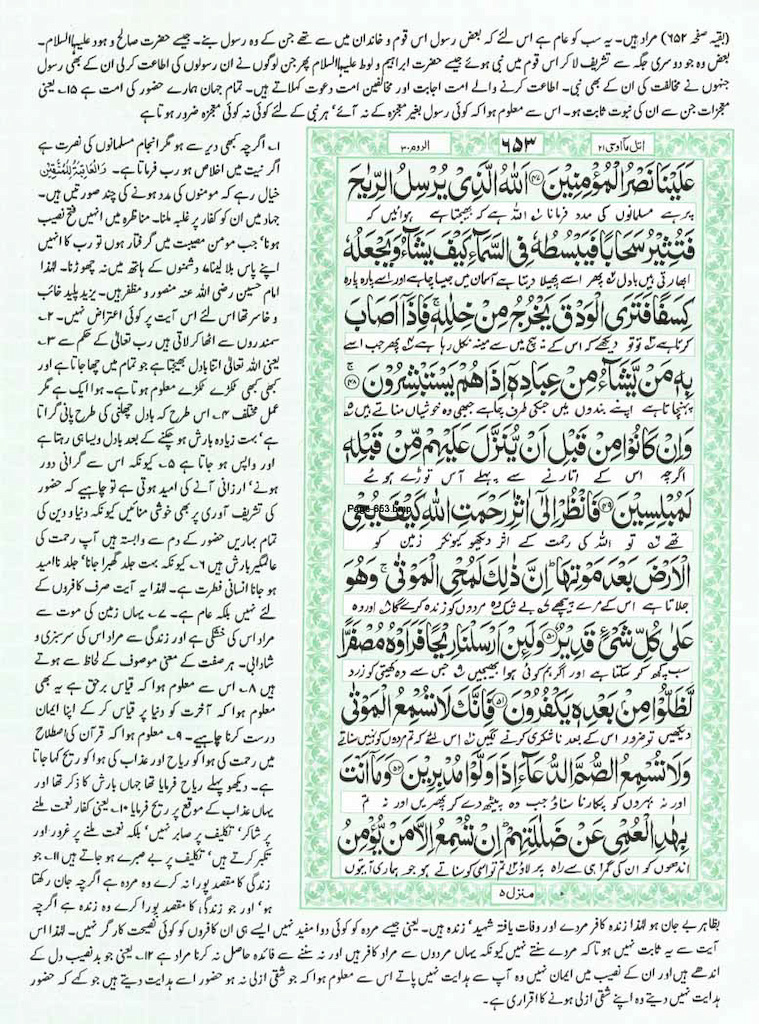 (بقیہ صفحہ ۶۵۲) مراد ہیں۔ یہ سب کو عام ہے اس لئے کہ بعض رسول اس قوم و خاندان میں سے تھے جن کے وہ رسول بنے۔ جیسے حضرت صالح و ہود علیہما السلام۔
بعض وہ جو دوسری جگہ سے تشریف لا کر اس قوم میں نبی ہوئے جیسے حضرت ابراہیم و لوط علیہما السلام پھر جن لوگوں نے ان رسولوں کی اطاعت کرلی ان کے بھی رسول
جنہوں نے مخالفت کی ان کے بھی نبی۔ اطاعت کرنے والے امت اجابت اور مخالفین امت دعوت کہلاتے ہیں۔ تمام جہان ہمارے حضور کی امت ہے ۱۵۔ یعنی
معجزات جن سے ان کی نبوت ثابت ہو۔ اس سے معلوم ہوا کہ کوئی رسول بغیر معجزہ کے نہ آئے' ہر نبی کے لئے کوئی نہ کوئی معجزہ ضرور ہوتا ہے
اتل مآ اوحی ۲۱
۶۵۳
الروم ۳۰
عَلَيْنَا نَصْرُ الْمُؤْمِنِيْنَ ﴿۴۷﴾ اَللّٰهُ الَّذِيْ يُرْسِلُ الرِّيٰحَ
پر ہے مسلمانوں کی مدد فرمانا اللہ ہے کہ بھیجتا ہے ہوائیں کہ
فَتُثِيْرُ سَحَابًا فَيَبْسُطُهٗ فِي السَّمَآءِ كَيْفَ يَشَآءُ وَيَجْعَلُهٗ
ابھارتی ہیں بادل پھر اسے پھیلا دیتا ہے آسمان میں جیسا چاہے اور اسے پارہ پارہ
كِسَفًا فَتَرَى الْوَدْقَ يَخْرُجُ مِنْ خِلٰلِهٖ ۚ فَاِذَآ اَصَابَ
کرتا ہے تو تو دیکھے کہ اس کے بیچ میں سے مینہ نکل رہا ہے پھر جب اسے
بِهٖ مَنْ يَّشَآءُ مِنْ عِبَادِهٖٓ اِذَا هُمْ يَسْتَبْشِرُوْنَ ﴿۴۸﴾
پہنچاتا ہے اپنے بندوں میں جسکی طرف چاہے جبھی وہ خوشیاں مناتے ہیں
وَاِنْ كَانُوْا مِنْ قَبْلِ اَنْ يُّنَزَّلَ عَلَيْهِمْ مِّنْ قَبْلِهٖ
اگرچہ اس کے اتارنے سے پہلے آس توڑے ہوئے
لَمُبْلِسِيْنَ ﴿۴۹﴾ فَانْظُرْ اِلٰٓى اٰثٰرِ رَحْمَتِ اللّٰهِ كَيْفَ يُحْيِ
Page-653.bmp
تھے تو اللہ کی رحمت کے اثر دیکھو کیونکر زمین کو
الْاَرْضَ بَعْدَ مَوْتِهَا ۭ اِنَّ ذٰلِكَ لَمُحْيِ الْمَوْتٰى ۚ وَهُوَ
جلاتا ہے اس کے مرے پیچھے بے شک وہ مردوں کو زندہ کرے گا اور وہ
عَلٰى كُلِّ شَيْءٍ قَدِيْرٌ ﴿۵۰﴾ وَلَئِنْ اَرْسَلْنَا رِيْحًا فَرَاَوْهُ مُصْفَرًّا
سب کچھ کر سکتا ہے اور اگر ہم کوئی ہوا بھیجیں جس سے وہ کھیتی کو زرد
لَّظَلُّوْا مِنْ بَعْدِهٖ يَكْفُرُوْنَ ﴿۵۱﴾ فَاِنَّكَ لَا تُسْمِعُ الْمَوْتٰى
دیکھیں تو ضرور اس کے بعد ناشکری کرنے لگیں اس لئے کہ تم مردوں کو نہیں سناتے
وَلَا تُسْمِعُ الصُّمَّ الدُّعَآءَ اِذَا وَلَّوْا مُدْبِرِيْنَ ﴿۵۲﴾ وَمَآ اَنْتَ
اور نہ بہروں کو پکارنا سناؤ جب وہ پیٹھ دے کر پھریں اور نہ تم
بِهٰدِ الْعُمْيِ عَنْ ضَلٰلَتِهِمْ ۭ اِنْ تُسْمِعُ اِلَّا مَنْ يُّؤْمِنُ
اندھوں کو ان کی گمراہی سے راہ پر لاؤ تم تو اسی کو سناتے ہو جو ہماری آیتوں
منزل ۵
۱۔ اگرچہ کبھی دیر سے ہو مگر انجام مسلمانوں کی نصرت ہے
اگر نیت میں اخلاص ہو رب فرماتا ہے۔ وَالْعَاقِبَةُ لِلْمُتَّقِيْنَ
خیال رہے کہ مومنوں کی مدد ہونے کی چند صورتیں ہیں۔
جہاد میں ان کو کفار پر غلبہ ملنا۔ مناظرہ میں انہیں فتح نصیب
ہونا' جب مومن مصیبت میں گرفتار ہوں تو رب کا انہیں
اپنے پاس بلا لینا دشمنوں کے ہاتھ میں نہ چھوڑنا۔ لہٰذا
امام حسین رضی اللہ عنہ منصور و مظفر ہیں۔ یزید پلید خائب
و خاسر تھا اس لئے اس آیت پر کوئی اعتراض نہیں۔ ۲۔
سمندروں سے اٹھا کر لاتی ہیں رب تعالٰی کے حکم سے ۳۔
یعنی اللہ تعالٰی اتنا بادل بھیجتا ہے جو تمام میں چھا جاتا ہے اور
کبھی کبھی ٹکڑے ٹکڑے معلوم ہوتا ہے۔ ہوا ایک ہے مگر
عمل مختلف ۴۔ اس طرح کہ بادل چھلنی کی طرح پانی گراتا
ہے' بہت زیادہ بارش ہو چکنے کے بعد بادل ویسا ہی رہتا ہے
اور واپس ہو جاتا ہے ۵۔ کیونکہ اس سے گرانی دور
ہونے' ارزانی آنے کی امید ہوتی ہے تو چاہیے کہ حضور
کی تشریف آوری پر بھی خوشی منائیں کیونکہ دنیا و دین کی
تمام بہاریں حضور کے دم سے وابستہ ہیں آپ رحمت کی
عالمگیر بارش ہیں ۶۔ کیونکہ بہت جلد گھبرا جانا' جلد ناامید
ہو جانا انسانی فطرت ہے۔ لہٰذا یہ آیت صرف کافروں کے
لئے نہیں بلکہ عام ہے۔ ۷۔ یہاں زمین کی موت سے
مراد اس کی خشکی ہے اور زندگی سے مراد اس کی سرسبزی و
شادابی۔ ہر صفت کے معنی موصوف کے لحاظ سے ہوتے
ہیں ۸۔ اس سے معلوم ہوا کہ قیاس برحق ہے یہ بھی
معلوم ہوا کہ آخرت کو دنیا پر قیاس کر کے اپنا ایمان
درست کرنا چاہیے۔ ۹۔ معلوم ہوا کہ قرآن کی اصطلاح
میں رحمت کی ہوا کو ریاح اور عذاب کی ہوا کو ریح کہا جاتا
ہے۔ دیکھو پہلے ریاح فرمایا تھا جہاں بارش کا ذکر تھا اور
یہاں عذاب کے موقع پر ریح فرمایا ۱۰۔ یعنی کفار نعمت ملنے
پر شاکر' تکلیف پر صابر نہیں' بلکہ نعمت ملنے پر غرور اور
تکبر کرتے ہیں' تکلیف پر بے صبرے ہو جاتے ہیں ۱۱۔ جو
زندگی کا مقصد پورا نہ کرے وہ مردہ ہے اگرچہ جان رکھتا
ہو' اور جو زندگی کا مقصد پورا کرے وہ زندہ ہے اگرچہ
بظاہر بے جان ہو لہٰذا زندہ کافر مردے اور وفات یافتہ شہید' زندہ ہیں۔ یعنی جیسے مردہ کو کوئی دوا مفید نہیں ایسے ہی ان کافروں کو کوئی نصیحت کارگر نہیں۔ لہٰذا اس
آیت سے یہ ثابت نہیں ہوتا کہ مردے سنتے نہیں کیونکہ یہاں مردوں سے مراد کافر ہیں اور نہ سننے سے فائدہ حاصل نہ کرنا مراد ہے ۱۲۔ یعنی جو بدنصیب دل کے
اندھے ہیں اور ان کے نصیب میں ایمان نہیں وہ آپ سے ہدایت نہیں پاتے اس سے معلوم ہوا کہ جو شقی ازلی نہ ہو حضور اسے ہدایت دیتے ہیں جو کہے کہ حضور
ہدایت نہیں دیتے وہ اپنے شقی ازلی ہونے کا اقراری ہے۔